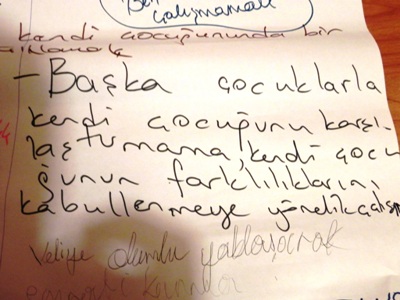 çalışmamalı
kendi çocuğununda bir
- Başka çocuklarla
kendi çocuğunu karşı-
laştırmama, kendi çocu
ğunun farklılıklarını
kabullenmeye yönelik çalışm
Veliye olumlu yaklaşarak